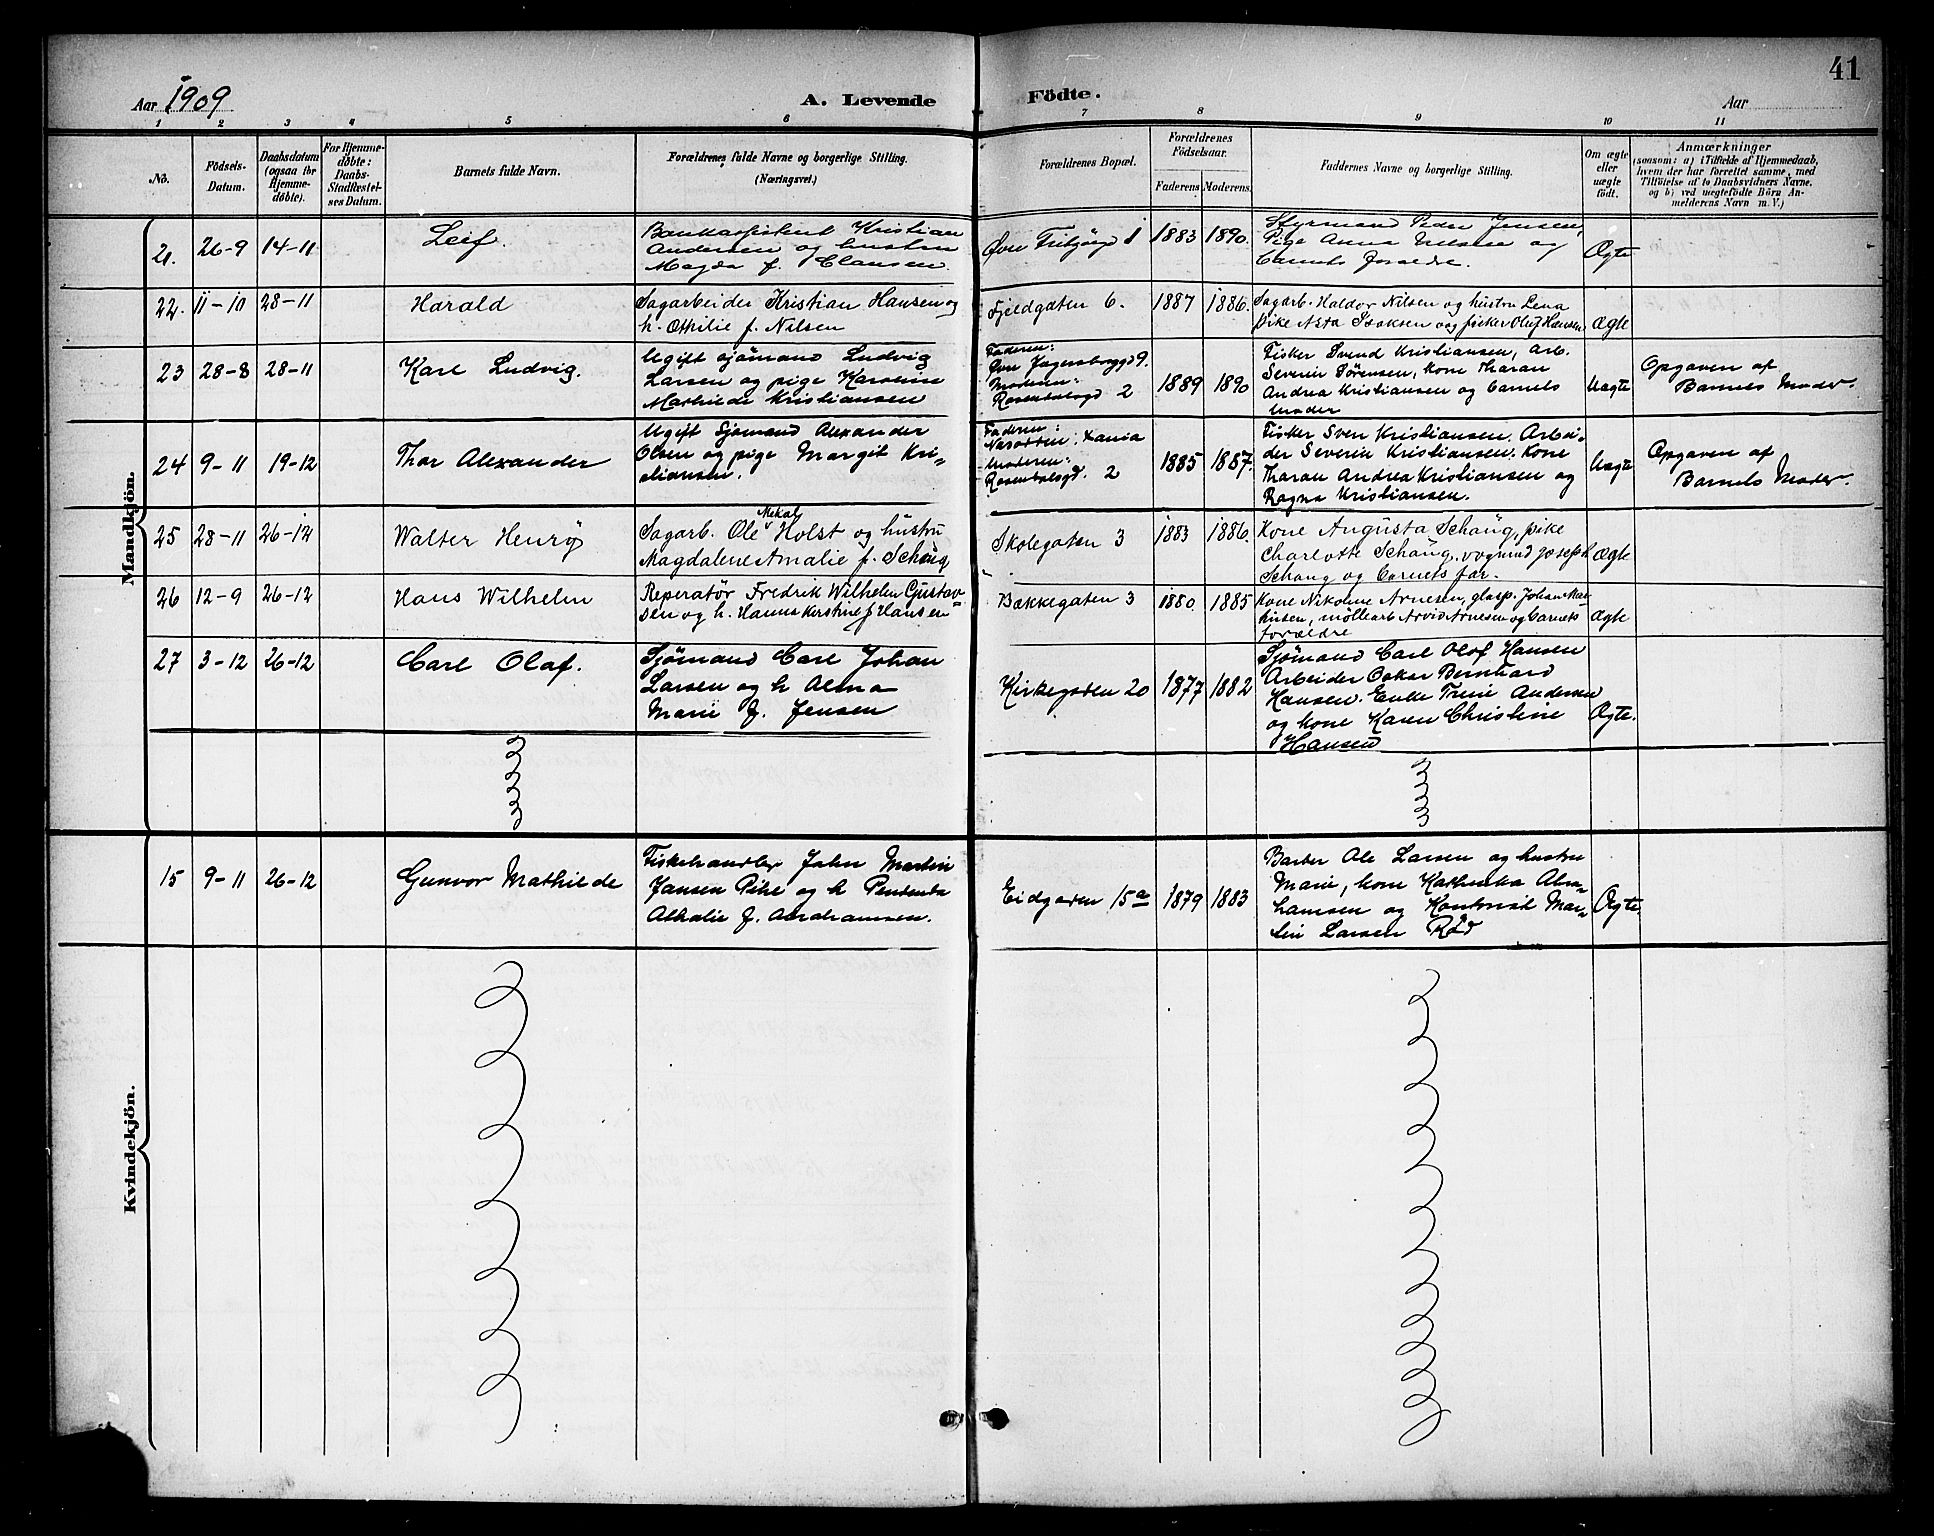 41
Aar 1909
A. Levende Födte.
Aar
1 2 3 4 5 6 7 8 9 10 11
No.
Födsels-
Datum.
Daabsdatum
(ogsaa for
Hjemme-
døbte).
For Hjemme-
døbte:
Daabs-
Stadfæstel-
ses Datum.
Barnets fulde Navn.
Forældrenes fulde Navne og borgerlige Stilling.
(Næringsvei.)
Forældrenes Bopæl.
Forældrenes
Födselsaar.
Faderens. Moderens.
Faddernes Navne og borgerlige Stilling.
Om ægte
eller
uægte
født.
Anmærkninger
(saasom: a) i Tilfælde af Hjemmedaab,
hvem der har forrettet samme, med
Tilföielse af to Daabsvidners Navne,
og b) ved uægtefödte Börn An-
melderens Navn m. V.)
Mandkjön.
21. 26-9 14-11
Leif.
Kristian
Andersen og hustru
Magda f. Clausen.
Øvre 1
1883 1890.
Styrmand Peder Jensen,
Pige Anna Nilsen og
Barnets forældre.
Ægte
22. 11-10 28-11
Harald
Sagarbeider Kristian Hansen og
h. Othilie f. Nilsen
Fjeldgaten 6.
1887 1886.
Sagarb. Haldor Nilsen og hustru Lena
pike Asta Isaksen og fisker Oluf Hansen
ægte
23 28-8 28-11
Karl Ludvig.
Ugift sjømand Ludvig
Larsen og pige Karoline
Mathilde Kristiansen
Faderen:
Øvre 9.
Moderen:
2
1889 1890
Fisker Svend Kristiansen, Arb.
Severin Sørensen, kone Tharan
Andrea Kristiansen og Barnets
Moder
Uægte
Opgaven af
Barnets Moder.
24 9-11 19-12
Thor Alexander
Ugift Sjømand Alexander
Olsen og pige Margit Kri-
stiansen.
Faderen:
Xania
Moderen:
2
1885 1887.
Fisker Sven Kristiansen. Arbei-
der Severin Kristiansen. Kone
Tharan Andrea Kristiansen og
Ragna Kristiansen.
Uægte
Opgaven af
Barnets Moder.
25 28-11 26-12
Walter Henry
Mekal
Sagarb. Ole Holst og hustru
Magdalene Amalie f. Schaug
Skolegaten 3
1883 1886.
Kone Augusta Schaug, pike
Charlotte Schaug, vognmd Joseph
Schaug og Barnets far.
ægte
26 12-9 26-12
Hans Wilhelm
Reperatør Fredrik Wilhelm Gustav-
sen og h. Hanna Kerstine f. Hansen
Bækkegaten 3
1880. 1885
Kone Nikoline Arnesen, glasp. Johan
møllearb Arvid Arnesen og Barnets
forældre
ægte
27 3-12 26-12
Carl Olaf.
Sjømand Carl Johan
Larsen og h Alma
Marie f. Jensen
Kirkegaten 20
1877 1882
Sjømand Carl Olof Hansen
Arbeider Oskar Bernhard
Hansen. Enke Trine Andersen
og kone Karen Christine
Hansen
Ægte.
Kvindekjön.
15 9-11 26-12
Gunvor Mathilde
Fiskehandler John Martin
Jansen Pihe og h
Athalie f. Abrahamsen.
Eidgaten 15a
1879 1883
Barber Ole Larsen og hustru
Marie, kone Kathinka Abra-
hamsen og Kontorist Mar-
tin Larsen Rød
Ægte.